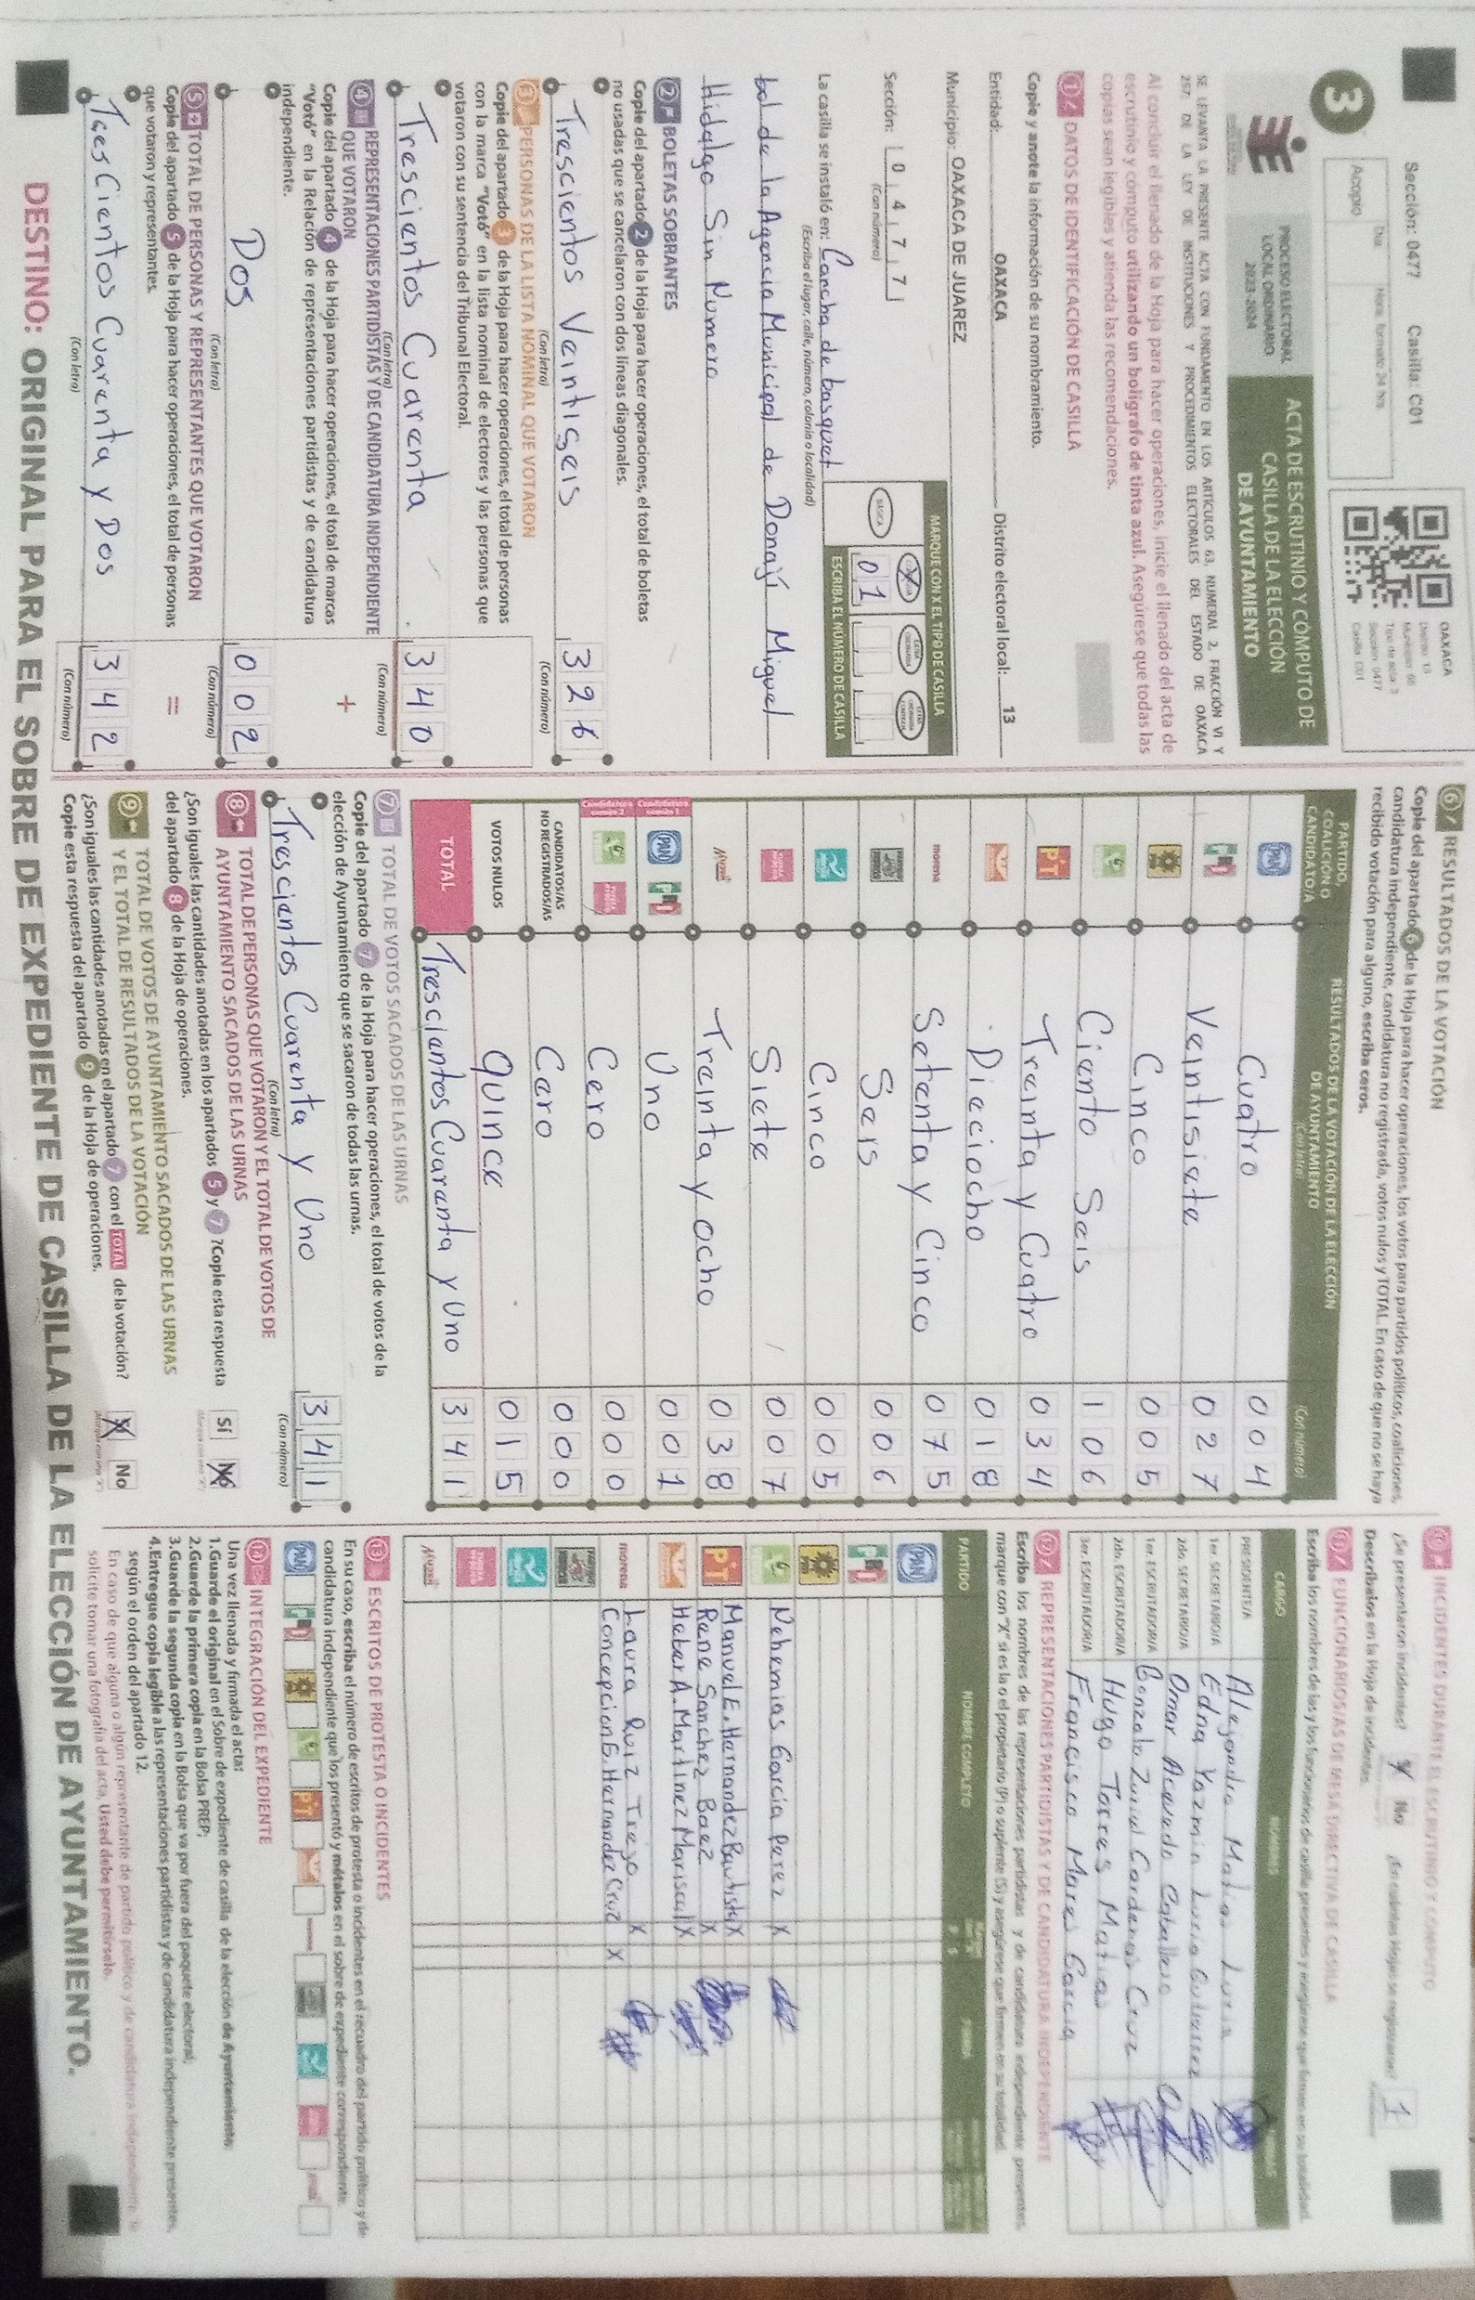 Sección: 0477 Casilla: C01
Día Hora formato 24 hrs
Acopio
OAXACA
Distrito: 13
Tipo de acta: 3
Sección: 0477
Casilla: C01
3
PROCESO ELECTORAL
LOCAL ORDINARIO
2023-2024
ACTA DE ESCRUTINIO Y CÓMPUTO DE
CASILLA DE LA ELECCIÓN
DE AYUNTAMIENTO
SE LEVANTA LA PRESENTE ACTA CON FUNDAMENTO EN LOS ARTÍCULOS 63, NUMERAL 2, FRACCIÓN VI Y
257, DE LA LEY DE INSTITUCIONES Y PROCEDIMIENTOS ELECTORALES DEL ESTADO DE OAXACA
Al concluir el llenado de la Hoja para hacer operaciones, inicie el llenado del acta de
escrutinio y cómputo utilizando un bolígrafo de tinta azul. Asegúrese que todas las
copias sean legibles y atienda las recomendaciones.
1 DATOS DE IDENTIFICACIÓN DE CASILLA
Copie y anote la información de su nombramiento.
Entidad: OAXACA Distrito electoral local: 13
Municipio: OAXACA DE JUAREZ
Sección: 0 4 7 7
(Con número)
MARQUE CON X EL TIPO DE CASILLA
BÁSICA
ESCRIBA EL NÚMERO DE CASILLA
01
La casilla se instaló en: Cancha de basquet
(Escriba el lugar, calle, número, colonia o localidad)
bol de la Agencia Municipal de Donají Miguel
Hidalgo Sin Numero
2 BOLETAS SOBRANTES
Copie del apartado 2 de la Hoja para hacer operaciones, el total de boletas
no usadas que se cancelaron con dos líneas diagonales.
Trescientos Veintiseis 326
(Con letra) (Con número)
3 PERSONAS DE LA LISTA NOMINAL QUE VOTARON
Copie del apartado 3 de la Hoja para hacer operaciones, el total de personas
con la marca "Votó" en la lista nominal de electores y las personas que
votaron con su sentencia del Tribunal Electoral.
Trescientos Cuarenta 340
(Con letra) (Con número)
4 REPRESENTACIONES PARTIDISTAS Y DE CANDIDATURA INDEPENDIENTE
QUE VOTARON
+
Copie del apartado 4 de la Hoja para hacer operaciones, el total de marcas
"Votó" en la Relación de representaciones partidistas y de candidatura
independiente.
Dos 002
(Con letra) (Con número)
5 TOTAL DE PERSONAS Y REPRESENTANTES QUE VOTARON
=
Copie del apartado 5 de la Hoja para hacer operaciones, el total de personas
que votaron y representantes.
Trescientos Cuarenta y Dos 342
(Con letra) (Con número)
6 RESULTADOS DE LA VOTACIÓN
Copie del apartado 6 de la Hoja para hacer operaciones, los votos para partidos políticos, coaliciones,
candidatura independiente, candidatura no registrada, votos nulos y TOTAL. En caso de que no se haya
recibido votación para alguno, escriba ceros.
PARTIDO,
COALICIÓN O
CANDIDATO/A
RESULTADOS DE LA VOTACIÓN DE LA ELECCIÓN
DE AYUNTAMIENTO
(Con letra) (Con número)
PAN Cuatro 004
PRI Veintisiete 027
Cinco 005
Ciento Seis 106
PT Treinta y Cuatro 034
Dieciocho 018
morena Setenta y Cinco 075
Seis 006
Cinco 005
Siete 007
Treinta y ocho 038
Candidatura común 1 PAN PRI Uno 001
Candidatura común 2 Cero 000
CANDIDATOS/AS
NO REGISTRADOS/AS Cero 000
VOTOS NULOS Quince 015
TOTAL Trescientos Cuarenta y Uno 341
7 TOTAL DE VOTOS SACADOS DE LAS URNAS
Copie del apartado 7 de la Hoja para hacer operaciones, el total de votos de la
elección de Ayuntamiento que se sacaron de todas las urnas.
Trescientos Cuarenta y Uno 341
(Con letra) (Con número)
8 TOTAL DE PERSONAS QUE VOTARON Y EL TOTAL DE VOTOS DE
AYUNTAMIENTO SACADOS DE LAS URNAS
¿Son iguales las cantidades anotadas en los apartados 5 y 7? Copie esta respuesta
del apartado 8 de la Hoja de operaciones.
Sí No
9 TOTAL DE VOTOS DE AYUNTAMIENTO SACADOS DE LAS URNAS
Y EL TOTAL DE RESULTADOS DE LA VOTACIÓN
¿Son iguales las cantidades anotadas en el apartado 7 con el TOTAL de la votación?
Copie esta respuesta del apartado 9 de la Hoja de operaciones.
No
10 INCIDENTES DURANTE EL ESCRUTINIO Y CÓMPUTO
¿Se presentaron incidentes? No ¿En cuántas Hojas se registraron? 1
Descríbalos en la Hoja de incidentes.
11 FUNCIONARIOS/AS DE MESA DIRECTIVA DE CASILLA
Escriba los nombres de las y los funcionarios de casilla presentes y asegúrese que firmen en su totalidad.
CARGO NOMBRES FIRMAS
PRESIDENTE/A Alejandra Matias Luria
1er. SECRETARIO/A Edna Yazmin Lucia Gutierrez
2do. SECRETARIO/A Omar Acevedo Caballero
1er. ESCRUTADOR/A Gonzalo Zuriel Cardenas Cruz
2do. ESCRUTADOR/A Hugo Torres Matias
3er. ESCRUTADOR/A Francisca Mares Garcia
12 REPRESENTACIONES PARTIDISTAS Y DE CANDIDATURA INDEPENDIENTE
Escriba los nombres de las representaciones partidistas y de candidatura independiente presentes,
marque con "X" si es la o el propietario (P) o suplente (S) y asegúrese que firmen en su totalidad.
PARTIDO NOMBRE COMPLETO P S FIRMA
PAN
PRI
Nehemias Garcia Perez X
PT Manuel E. Hernandez Bautista X
Rene Sanchez Baez X
Heber A. Martinez Mariscal X
morena Laura Ruiz Trejo X
Concepcion G. Hernandez Cruz X
13 ESCRITOS DE PROTESTA O INCIDENTES
En su caso, escriba el número de escritos de protesta o incidentes en el recuadro del partido político y de
candidatura independiente que los presentó y métalos en el sobre de expediente correspondiente.
PAN PRI PT
14 INTEGRACIÓN DEL EXPEDIENTE
Una vez llenada y firmada el acta:
1.Guarde el original en el Sobre de expediente de casilla de la elección de Ayuntamiento.
2.Guarde la primera copia en la Bolsa PREP;
3.Guarde la segunda copia en la Bolsa que va por fuera del paquete electoral;
4.Entregue copia legible a las representaciones partidistas y de candidatura independiente presentes,
según el orden del apartado 12.
En caso de que alguna o algún representante de partido político y de candidatura independiente, le
solicite tomar una fotografía del acta, Usted debe permitírselo.
DESTINO: ORIGINAL PARA EL SOBRE DE EXPEDIENTE DE CASILLA DE LA ELECCIÓN DE AYUNTAMIENTO.